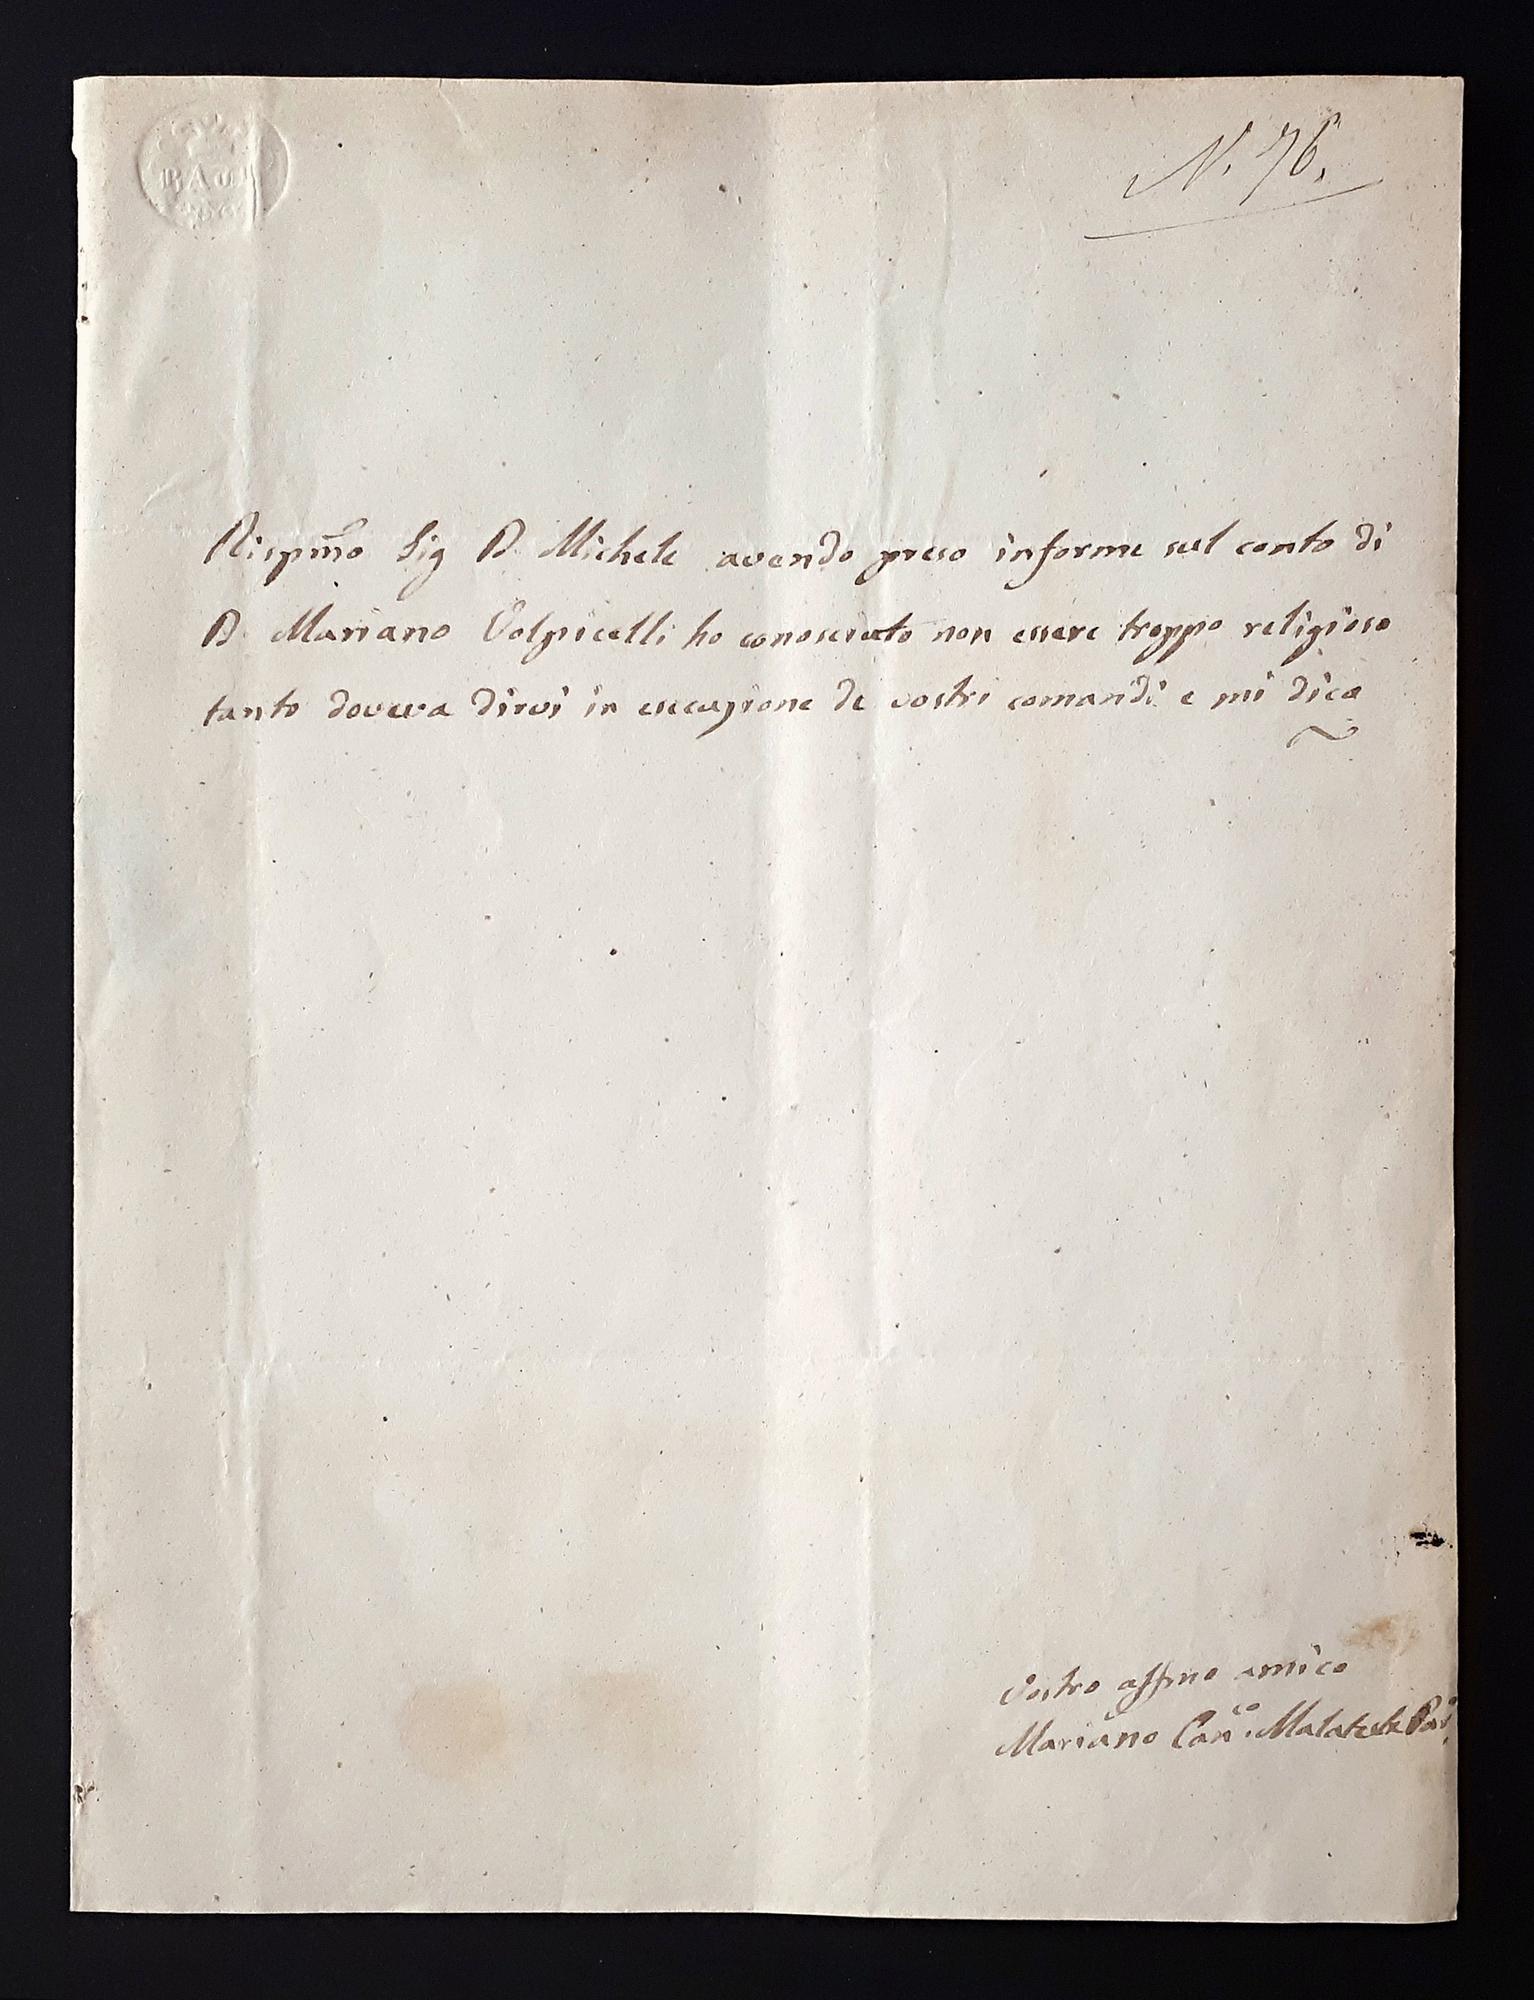 BAU
N. 76.
Rispmo Sig D. Michele avendo preso informe sul conto di
D. Mariano Volpicelli ho conosciuto non essere troppo religioso
tanto doveva dirvi in esecuzione de vostri comandi e mi dico
Vostro affmo amico
Mariano Canco. Malateste